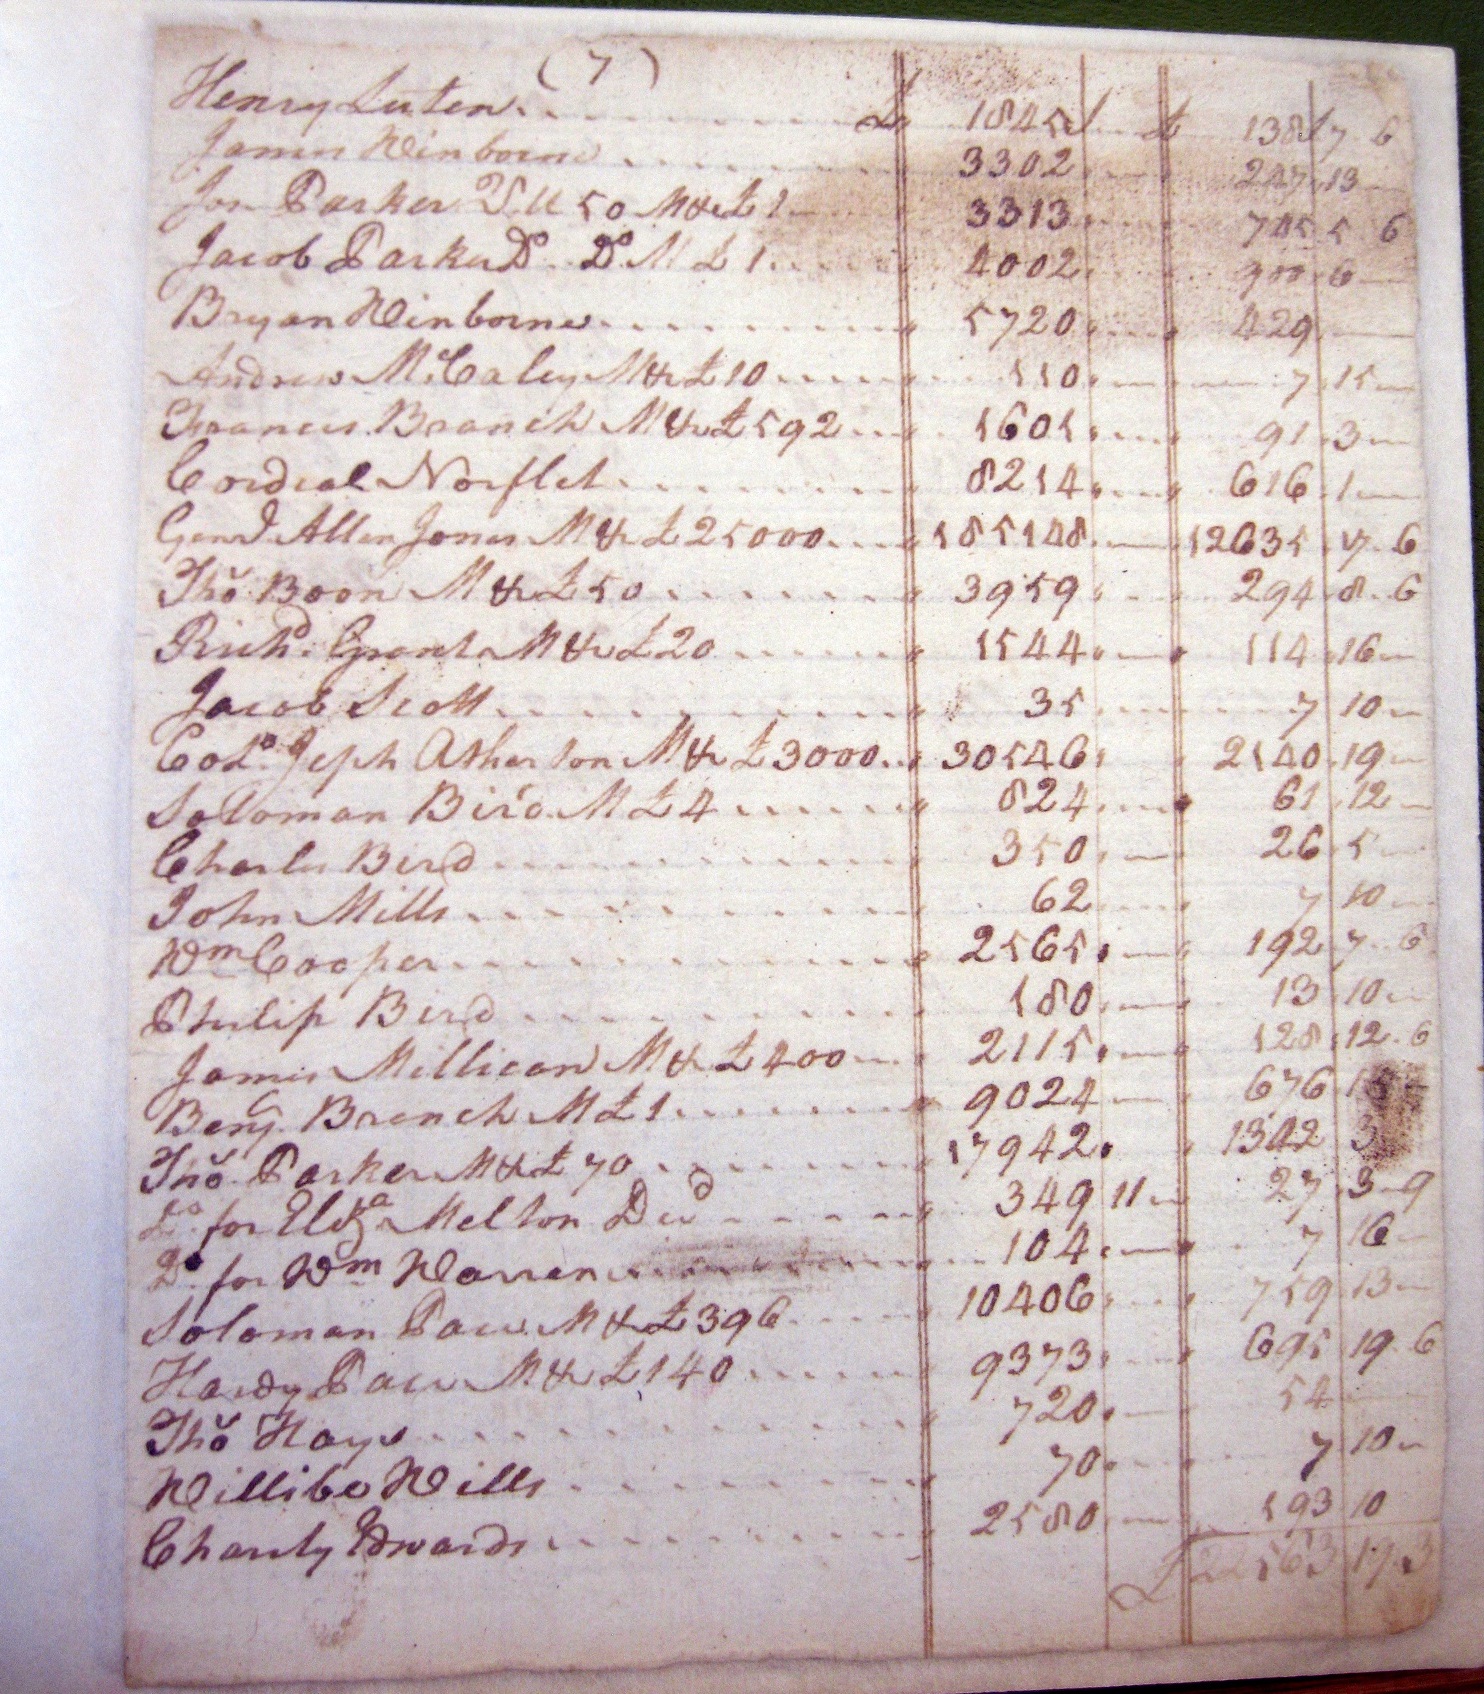 (7)
Henry Luten £ 1845 £ 138 7 6
James Winborne 3302 247 13
Jos. Parker 50 M & £ 1 3313 745 5 6
Jacob Parker Do. Do. M £ 1 4002 900 6
Bryan Winborne 5720 429
Andrew McCaley M & £ 10 110 7 15
Francis Branch M & £ 592 1601 91 3
Cordial Norflet 8214 616 1
Genl. Allen Jones M & £ 25000 185148 12635 17 6
Tho Boon M & £ 50 3959 294 8 6
Richd. Grant M & £ 20 1544 114 16
Jacob Scott 35 7 10
Colo. Jeph Atherton M & £ 3000 30546 2140 19
Soloman Bird M £ 4 824 61 12
Charles Bird 350 26 5
John Mills 62 7 10
Wm Cooper 2565 192 7 6
Philip Bird 180 13 10
James Millican M & £ 400 2115 128 12 6
Benj. Branch M £ 1 9024 676
Tho Parker M & £ 70 17942 1342 3
Do. for Eliza Melton Decd 349 11 27 3 9
Do. for Wm Warren 104 7 16
Soloman Pace M & £ 396 10406 759 13
Hardy Pace M & £ 140 9373 695 19 6
Tho Hays 720 54
Willibe Wills 70 7 10
Charity Edwards 2580 193 10
£ 22563 17 3